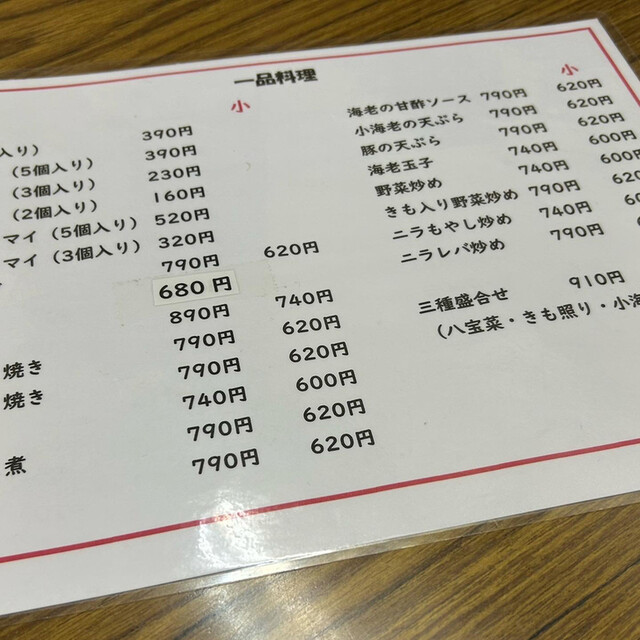 一品料理
小
入り) 390円
(5個入り) 390円
(3個入り) 230円
(2個入り) 160円
マイ (5個入り) 520円
マイ (3個入り) 320円
790円 620円
680円
890円 740円
焼き 790円 620円
焼き 790円 620円
740円 600円
煮 790円 620円
790円 620円
小
海老の甘酢ソース 790円 620円
小海老の天ぷら 790円 620円
豚の天ぷら 790円 620円
海老玉子 740円 600円
野菜炒め 740円 600
きも入り野菜炒め 790円 620
ニラもやし炒め 740円 60
ニラレバ炒め 790円 6
三種盛合せ 910円
(八宝菜・きも照り・小海